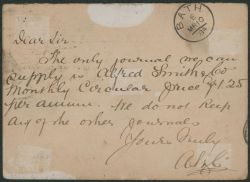 BATH
E
MR 10
Dear Sir
The only journal we can
supply is Alfred Smith & Co
Monthly Circular price $1.25
per annum. We do not keep
any of the other journals
Yours truly